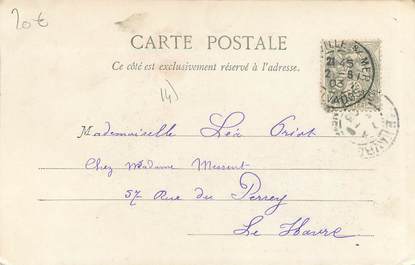 20€
CARTE POSTALE
Ce côté est exclusivement réservé à l'adresse.
14)
Mademoiselle Léa Oriot
Chez Madame Messent
57 Rue du Perrey
Le Havre
VILLE S. MER
21